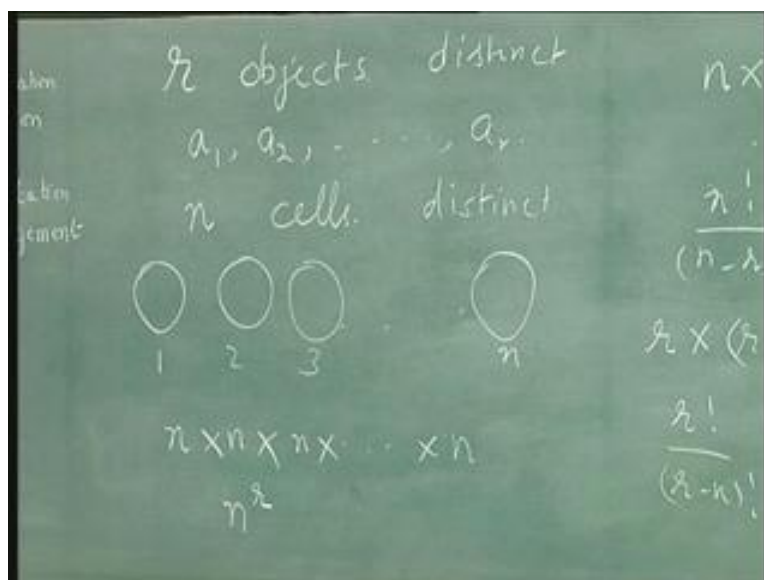 r objects distinct
a₁, a₂, . . . . , aᵣ.
n cells distinct
1 2 3 . . . n
n × n × n × . . . × n
nʳ
n ×
n!
(n - r
r × (r
r!
(r - n)!